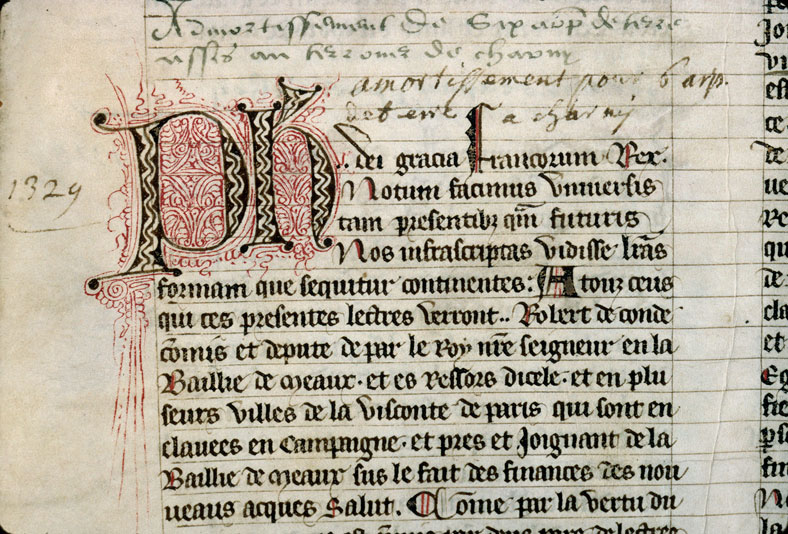 Admortissement de Six arp. de terre
assis au terrouer de charny
amortissement pour 6 arp.
de terre a charny
1329
Ph.. dei gracia francorum Rex.
Notum facimus vniuersis
tam presentibz qm̄ futuris
Nos infrascriptas vidisse lr̄as
formam que sequitur continentes: A touz ceus
qui ces presentes lectres verront.. Robert de conde
cōmis et depute de par le Roy nr̄e seigneur en la
Baillie de meaux. et es ressors dicele. et en plu
seurs villes de la visconte de paris qui sont en
clauees en Campaigne. et pres et Joignant de la
Baillie de meaux sus le fait des finances des nou
ueaus acques Salut. Cōme par la vertu du